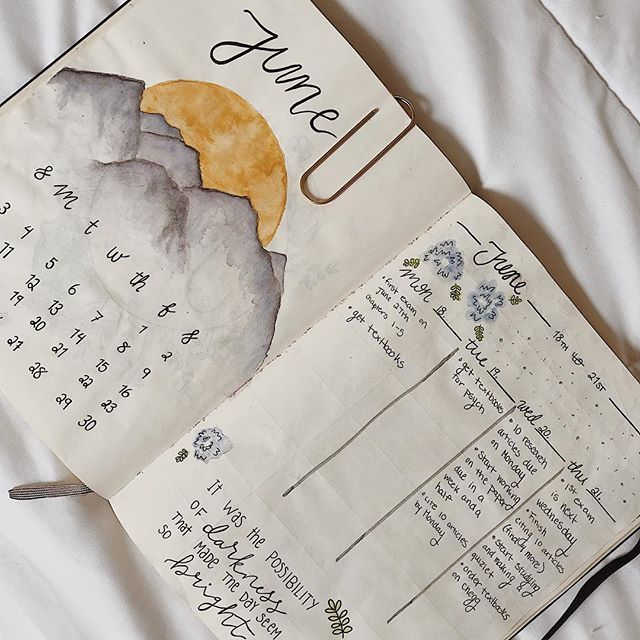 June
s m t w th f s
1 2
3 4 5 6 7 8 9
11 12 13 14 15 16
19 20 21 22 23
27 28 29 30
June
18TH 21ST
mon 18
• first exam on
June 27TH
chapters 1-5
• get textbooks
tue 19
• get textbooks
for psych
wed 20
• 10 research
articles due
on Monday
• start working
on the paper,
due in a
week and a
half
• cite 10 articles
by Monday
thu 21
• 1st exam
is next
wednesday
• finish
citing 10 articles
(find 4 more)
• start studying
and making a
quizlet
• order textbooks
on chegg
IT WAS THE POSSIBILITY
OF darkness
THAT MADE THE DAY SEEM
SO bright